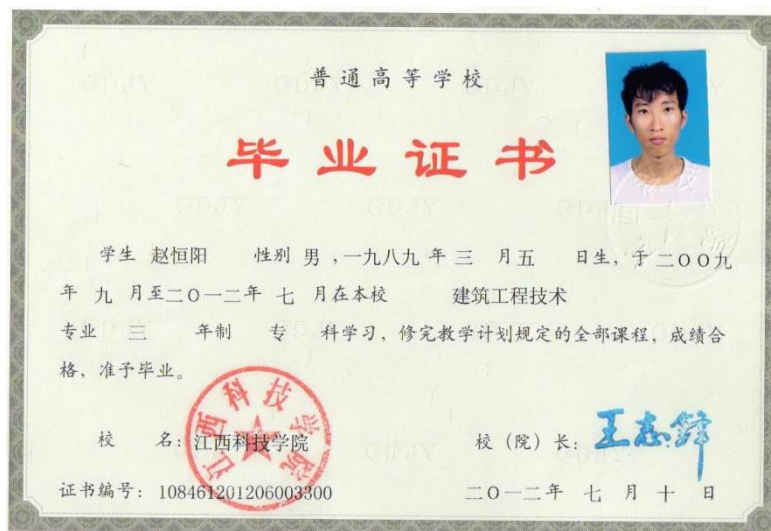 普通高等学校
毕业证书
学生 赵恒阳 性别 男 ,一九八九 年 三 月五 日生, 于 二〇〇九
年 九 月至二〇一二年 七 月在本校 建筑工程技术
专业 三 年制 专 科学习, 修完教学计划规定的全部课程, 成绩合
格, 准予毕业。
校 名: 江西科技学院
校(院)长: 王志锋
证书编号: 108461201206003300
二〇一二年 七 月 十 日
江西科技学院